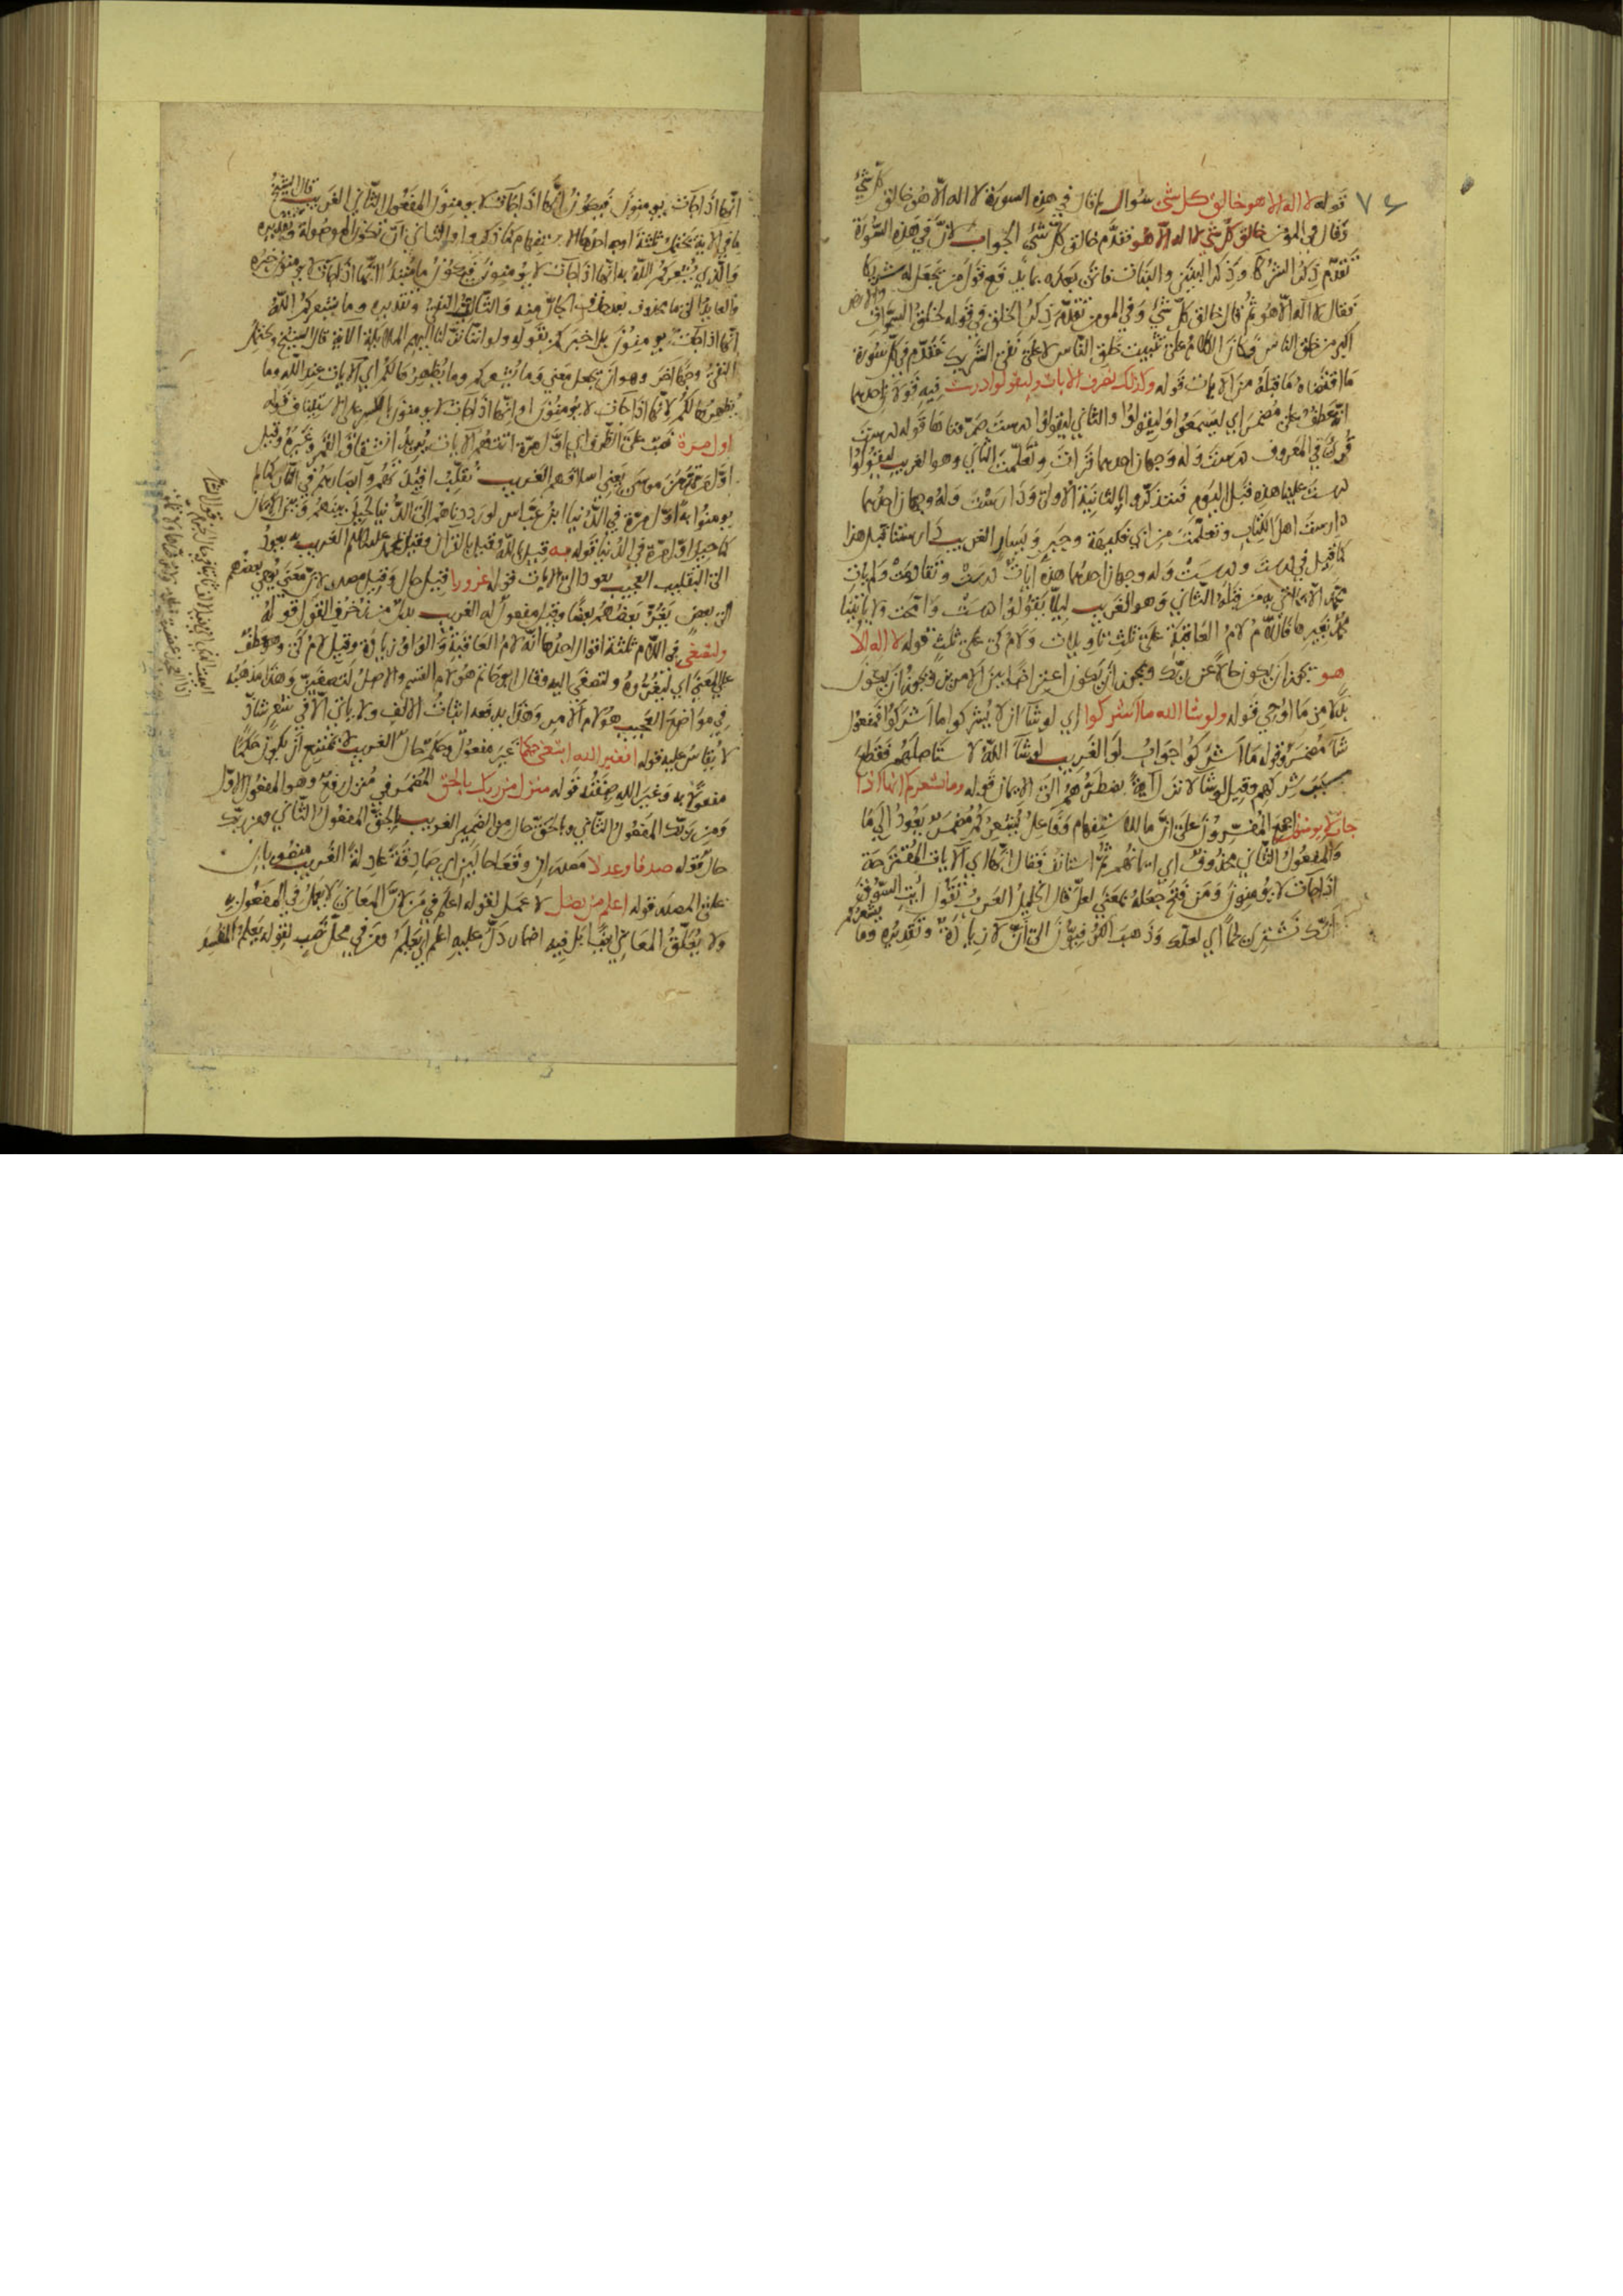 ٧٤
قوله لا اله الا هو خالق كل شى سُوال لم قال في هذه السورة لا اله الا هو خالق كلّ شيْ
وقال في المؤمن خالق كل شي لا اله الا هو فقدّم خالق كلّ شيْ الجواب لانّ في هذه السُّورَة
تقدّم ذكر الشركاء وذكر البنين والبنات فاتى بعده بما يدفع قول من يجعل له شريكا
فقال لا اله الا هو ثم قال خالق كلّ شيْ وفي المومن تقدّم ذكر الخلق وفي قوله لخلق السموات والارض
اكبر من خلق الناس فكان الكلام على تثبيت خلق الناس لا على نفي الشريك فقدّم في كلّ سُورة
ما اقتضاه ما قبله من الايات قوله وكذلك نصرف الايات وليقولوا درست فيه قولان احدهما
انه عطف على مضمر اي ليسمعوا وليقولوا والثاني ليقولوا درست صرفناها قوله درست
قرئ في المعروف درست وله وجهان احدهما قرات وتعلمت الثاني وهو الغريب ليقولوا
درست علينا هذه قبل اليوم فنتذكر اي الثانية الاولى ودارست وله وجهان احدهما
دارست اهل الكتاب وتعلمت من ابي فكيهة وجبر ويسار الغريب دارستنا قبل هذا
كما قيل في درست ودرست وله وجهان احدهما هذه ايات درست وتقادمت ولم يات
محمد الا بما اتى به من قبله الثاني وهو الغريب ليلا يقولوا درست وانمحت ولا ياتينا
محمد بغيرها فاللام لام العاقبة على ثلث تاويلات ولام كي على ثلث قوله لا اله الا
هو يجوز ان يكون حالا من ربك ويجوز ان يكون اعتراضا بين الامرين ويجوز ان يكون
بدلا من ما اوحي قوله ولو شا الله ما اشركوا اي لو شا ان لا يشركوا ما اشركوا فمفعول
شا مضمر وقوله ما اشركوا جواب لو الغريب لو شا الله لاستاصلهم فقطع
سبب شركهم وقيل لو شا لانزل آية يضطرهم الى الايمان قوله وما يشعركم انها اذا
جات لا يومنون اجمع المفسرون على ان ما للاستفهام وفاعل يشعركم مضمر يعود الى ما
والمفعول الثاني محذوف اي ايمانهم ثم استانف فقال انها اي الايات المقترحة
اذا جات لا يومنون ومن فتح جعله بمعنى لعل قال الخليل العرب تقول ايت السوق
انك تشتري لحما اي لعلك وذهب اللغويون الى ان لا زيادة وتقديره وما يشعركم
انها اذا جات يومنون فيجوز انها اذا جات لا يومنون المفعول الثاني الغريب قال الشيخ
ما في الاية يحتمل ثلثة اوجه احدها الاستفهام كما ذكروا والثاني ان تكون الموصولة وتقديره
والذي يشعركم الله به انها اذا جات لا يومنون فيجوز ما مبتدا انها اذا جات لا يومنون خبره
والعايد الى ما محذوف والثالث النفي وتقديره وما يشعركم الله
انها اذا جات يومنون بل اخبركم بقوله ولو اننا نزلنا اليهم الملائكة الاية قال الشيخ ويحتمل
النفي وجها اخر وهو ان تجعل معنى وما يشعركم وما يظهر لكم اي الايات عند الله وما
يظهرها لكم لانها اذا جات لا يومنون او انها اذا جات لا يومنون بالكسر على الاستيناف قوله
اول مرة نصب على الظرف اي اول مرة اتتهم الايات يريد انشقاق القمر وغيره وقيل
اول مرة زمن موسى يعني اسلافهم الغريب نقلب افئدتهم وابصارهم في النار كما لم
يومنوا به اول مرة في الدنيا ابن عباس لو رددناهم الى الدنيا لحيل بينهم وبين الايمان
كما حيل اول مرة في الدنيا قوله به قيل بالله وقيل بالقران وقيل بمحمد عليه السلم الغريب به يعود
الى التقليب العجيب يعود الى الايات قوله غرورا قيل حال وقيل مصدر لان معنى يوحي بعضهم
الى بعض يغرّ بعضهم بعضا وقيل مفعول له الغريب بدل من زخرف القول قوله
ولتصغى في اللام ثلثة اقوال احدها انه لام العاقبة والواو زيادة وقيل لام كي وهو عطف
على المعنى اي ليغرّوه ولتصغى اليه وقال ابو حاتم هو لام القسم والاصل لتصغين وهذا مذهبه
في مواضع العجيب هو لام الامر وهذا يدفعه اثبات الالف ولا ياتي الا في شعر شاذ
لا يقاس عليه قوله افغير الله ابتغى حكما غير مفعول وحكما حال الغريب لا يمتنع ان يكون حكما
مفعولا به وغير الله صفته قوله منزل من ربك بالحق المضمر في منزل رفع وهو المفعول الاول
ومن ربك المفعول الثاني وبالحق حال من الضمير الغريب بالحق المفعول الثاني ومن ربك
حال قوله صدقا وعدلا مصدران وقعا حالين اي صادقة عادلة الغريب منصوبان
على المصدر قوله اعلم من يضل لا عمل لقوله اعلم في من لان المعاني لا يعمل في المفعول به
ولا يعلق المعاني ايضا بل فيه اضمار دل عليه اعلم اي يعلم ومن في محل نصب لقوله يعلم المفسد